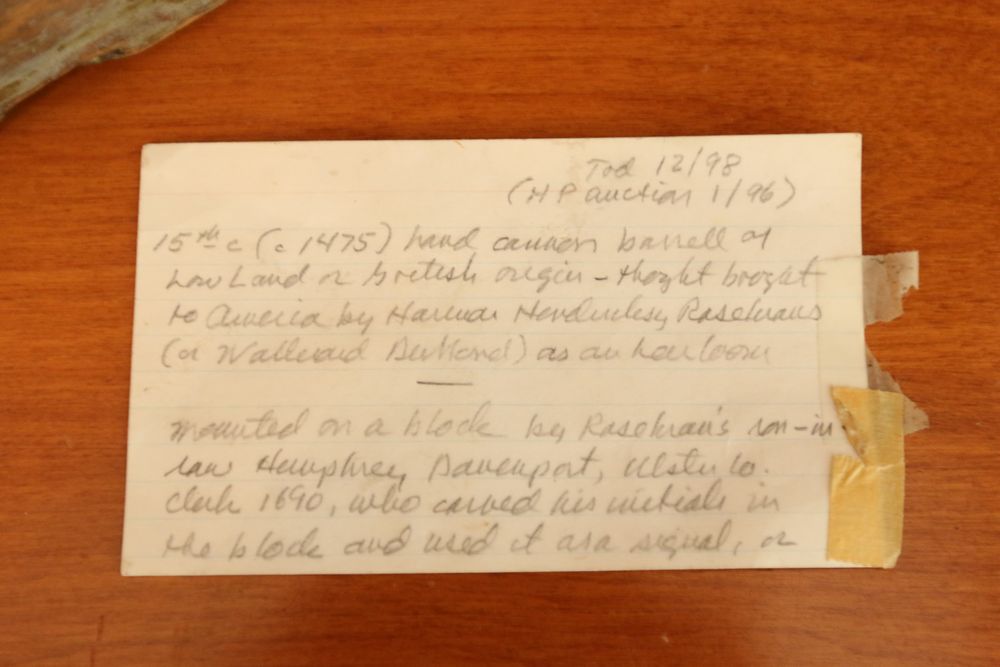 Tod 12/98
(HP auction 1/96)
15th c (c 1475) hand cannon barrell of
Low Land or british origin - thoght broght
to America by Harmon Hendricksen Rosekrans
(or Wallerand Dumond) as an heirloom
mounted on a block by Rosekran's son-in-
law Humphrey Davenport, Ulster Co.
clerk 1690, who carved his initials in
the block and used it as a signal, or